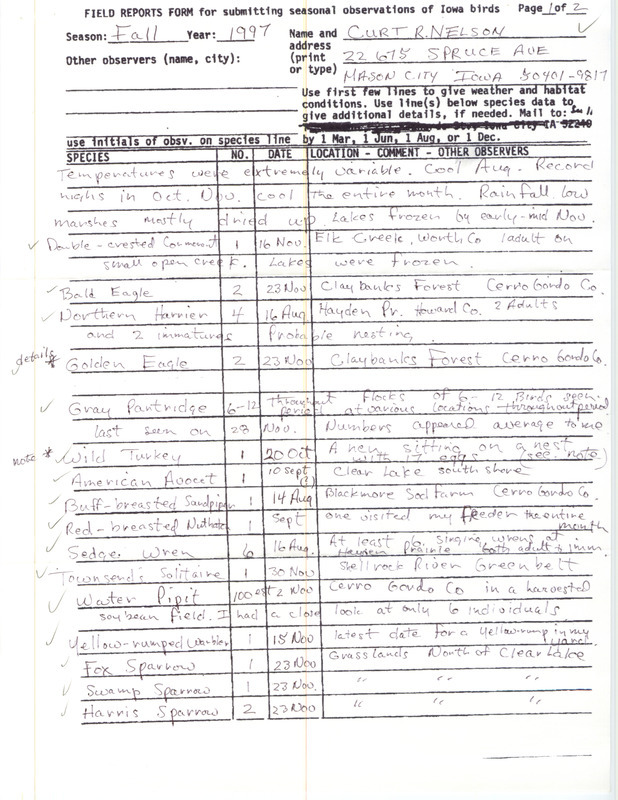 FIELD REPORTS FORM for submitting seasonal observations of Iowa birds Page 1 of 2
Season: Fall Year: 1997 Name and CURT R. NELSON
address
Other observers (name, city): (print 22675 SPRUCE AVE
or type) MASON CITY IOWA 50401-9817
Use first few lines to give weather and habitat
conditions. Use line(s) below species data to
give additional details, if needed. Mail to:
Iowa City IA 52240
use initials of obsv. on species line by 1 Mar, 1 Jun, 1 Aug, or 1 Dec.
SPECIES NO. DATE LOCATION - COMMENT - OTHER OBSERVERS
Temperatures were extremely variable. Cool Aug. Record
highs in Oct. Nov. cool the entire month. Rainfall low
marshes mostly dried up. Lakes frozen by early-mid Nov.
Double-crested Cormorant 1 16 Nov. Elk Creek, Worth Co 1 adult on
small open creek. Lakes were frozen.
Bald Eagle 2 23 Nov Claybanks Forest Cerro Gordo Co.
Northern Harrier 4 16 Aug Hayden Pr. Howard Co. 2 Adults
and 2 immatures Probable nesting
details * Golden Eagle 2 23 Nov Claybanks Forest Cerro Gordo Co.
Gray Partridge 6-12 throughout period Flocks of 6-12 Birds seen
at various locations throughout period
last seen on 28 Nov. Numbers appeared average to me
note * Wild Turkey 1 20 Oct A hen sitting on a nest
with 17 eggs (see note)
American Avocet 1 10 Sept Clear Lake south shore
Buff-breasted Sandpiper 1 14 Aug Blackmore Sod Farm Cerro Gordo Co.
Red-breasted Nuthatch 1 Sept one visited my feeder the entire
month
Sedge Wren 6 16 Aug. At least 6 singing wrens at
Hayden Prairie both adult & imm.
Townsend's Solitaire 1 30 Nov Shellrock River Greenbelt
Water Pipit 100 est 2 Nov Cerro Gordo Co in a harvested
soybean field. I had a close look at only 6 individuals
Yellow-rumped Warbler 1 15 Nov latest date for a yellow-rump in my
yard
Fox Sparrow 1 23 Nov Grasslands North of Clear Lake
Swamp Sparrow 1 23 Nov. " " "
Harris Sparrow 2 23 Nov " " "